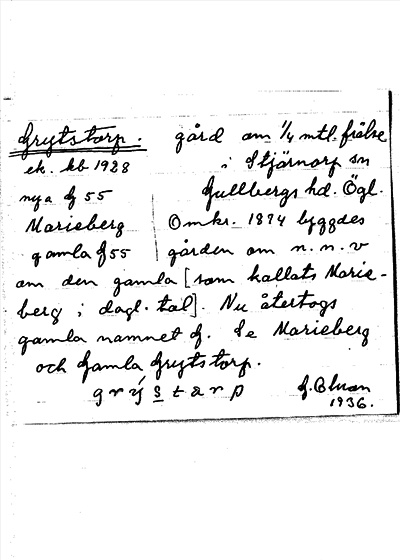 Grytstorp. gård om 1/4 mtl. frälse
ek. kb 1928 i Stjärnorp sn
nya G 55 Gullbergs hd. Ögl.
Marieberg Omkr. 1874 byggdes
gamla G 55 gården om n.n.v
om den gamla [som kallats Marie-
berg i dagl. tal]. Nu återtogs
gamla namnet G. Se Marieberg
och Gamla Grytstorp.
g r ý s t a r p
1936.